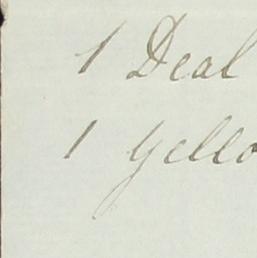 1 Deal
1 Yello